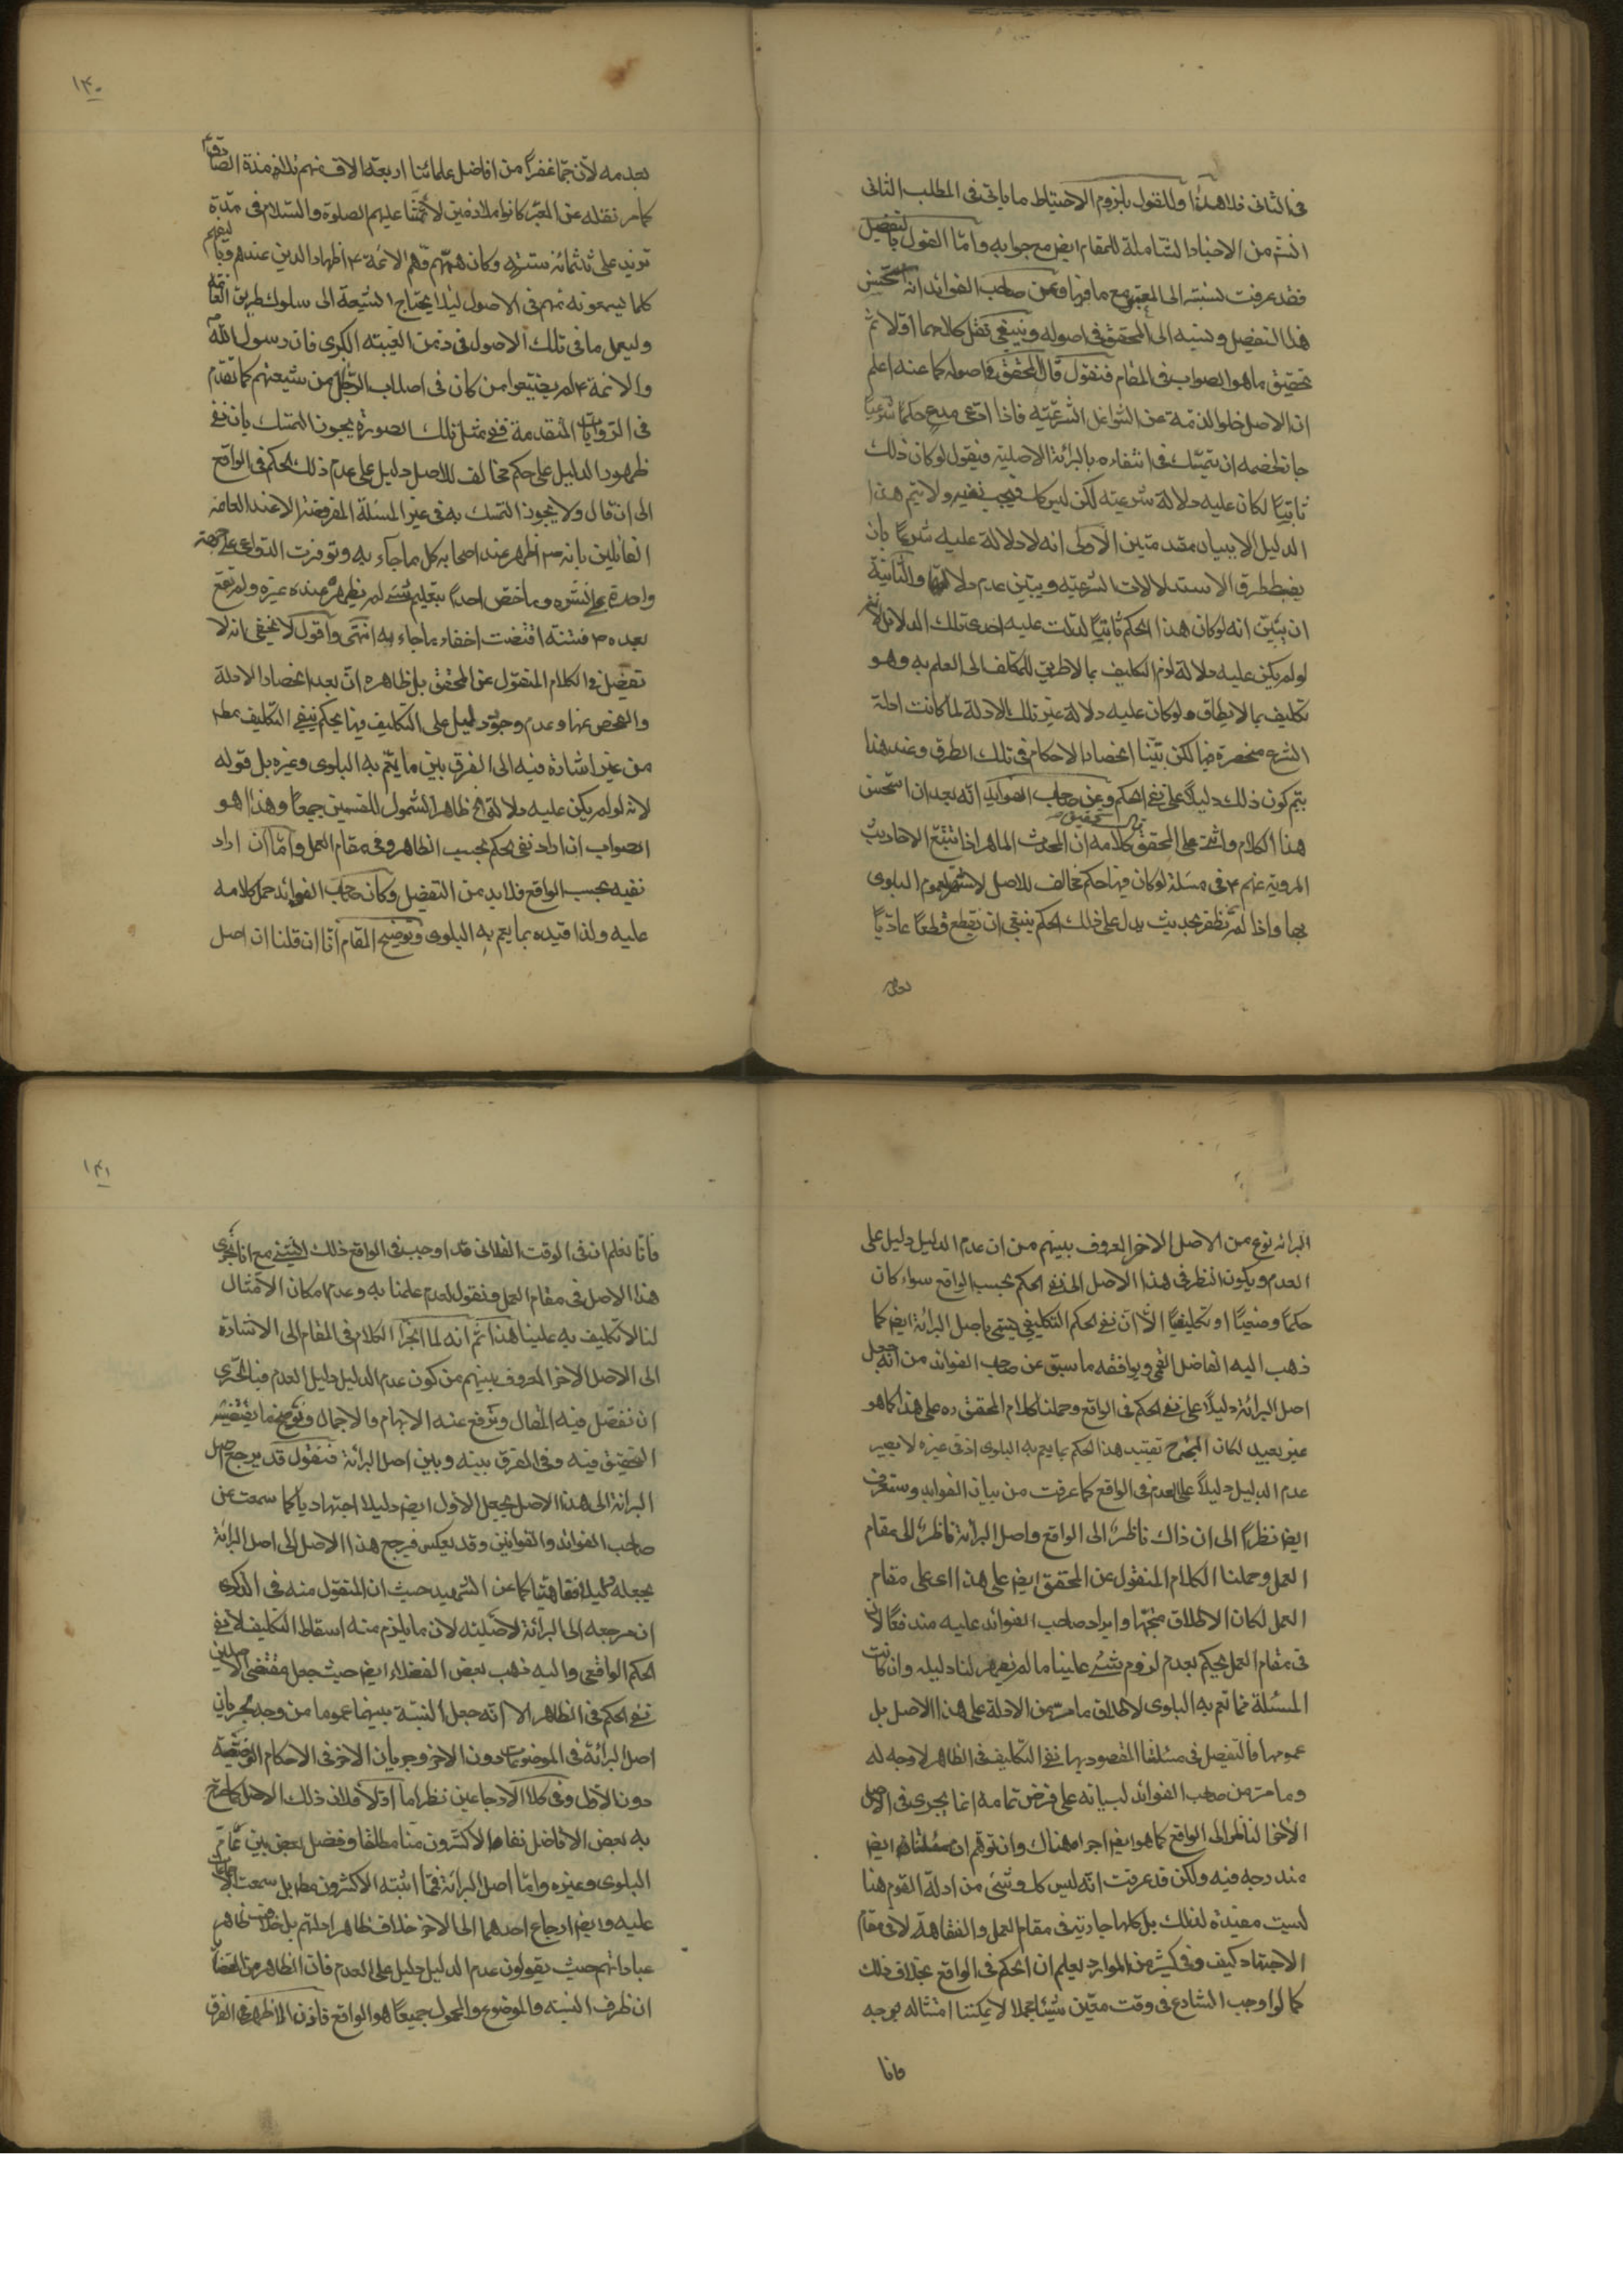 فى الثانى فلا هذا وللقول بلزوم الاحتياط ما ياتى فى المطلب الثانى
انشم من الاخبار الشاملة للمقام ايض مع جوابه وامّا القول بالتفصيل
فقد عرفت نسبته الى المعتبر مع ما فيها وعن صاحب الفوائد انه استحسن
هذا التفصيل ونسبه الى المحقق فى اصوله وينبغى نقل كلاحهما اوّلا ثمّ
تحقيق ما هو الصواب فى المقام فنقول قال المحقق فى اصوله كما عنه اعلم
ان الاصل خلو الذمة عن الشواغل الشرعيّة فاذا ادعى مدع حكمًا شرعيّا
جاز لخصمه ان يتمسّك فى انتفاءه بالبرائة الاصلية فيقول لو كان ذلك
ثابتًا لكان عليه دلالة شرعيته لكن ليس كك فيجب نفيه ولا يتم هذا
الدليل الا ببيان مقدمتين الاولى انه لا دلالة عليه شرعًا بان
يضبط طرق الاستدلالات الشرعيّه ويبيّن عدم دلالتها والثانية
ان يبيّن انه لو كان هذا الحكم ثابتًا لدلت عليه احدى تلك الدلائل لانه
لو لم يكن عليه دلالة لزم التكليف بما لا طريق للمكلف الى العلم به وهو
تكليف بما لا يطاق ولو كان عليه دلالة غير تلك الادلة لما كانت ادلة
الشرع منحصرة فيها لكن بيّنا انحصار الاحكام فى تلك الطرق وعند هذا
يتم كون ذلك دليلاً على نفى الحكم وعن صاحب الفوايد انّه بعد ان استحسن
هذا الكلام واثنى على المحقق كلامه ان المحدث الماهر اذا تتبّع الاحاديث
المروية عنهم ع فى مسئلة لو كان فيها حكم مخالف للاصل لاشتهر لعموم البلوى
بها واذا لم يظفر بحديث يدل على ذلك الحكم ينبغى ان يقطع قطعًا عاديًّا
بعدمه
بعدمه لان جمّا غفيرًا من افاضل علمائنا اربعة الاف منهم تلامذة الصادق ع
كما مر نقله عن المعتبر كانوا ملازمين لائمّتنا عليهم الصلوة والسّلام فى مدّة
تزيد على ثلثمائة سنة وكان همّهم وهمّ الائمة ع اظهار الدين عندهم وتاليفهم
كلما يسمعونه منهم فى الاصول لئلا يحتاج الشيعة الى سلوك طريق العامّة
وليعمل ما فى تلك الاصول فى زمن الغيبة الكبرى فان رسول الله
والائمة ع لم يضيّعوا من كان فى اصلاب الرّجال من شيعتهم كما تقدّم
فى الروايات المتقدمة ففى مثل تلك الصورة يجوز التمسّك بان نفى
ظهور الدليل على حكم مخالف للاصل دليل على عدم ذلك الحكم فى الواقع
الى ان قال ولا يجوز التمسك به فى غير المسئلة المفروضة الا عند العامة
القائلين بانه ص اظهر عند اصحابه كل ما جآء به وتوفرت الدواعى على جهة
واحدة على نشره وما خصّ احدًا بتعليم شئ لم يظهره عند غيره ولم تقع
بعده ص فتنة اقتضت اخفاء ما جاء به انتهى واقول لا يخفى انه لا
تفصّل فى الكلام المنقول عن المحقق بل ظاهره انّ بعد انحصار الادلة
والفحص عنها وعدم وجود دليل على التكليف فيها يحكم بنفى التكليف مطم
من غير اشارة فيه الى الفرق بين ما يعم به البلوى وغيره بل قوله
لانه لو لم يكن عليه دلالة الخ ظاهر الشمول للقسمين جميعًا وهذا هو
الصواب ان اراد نفى الحكم بحسب الظاهر وفى مقام العمل وامّا ان اراد
نفيه بحسب الواقع فلا بد من التفصيل وكان صاحب الفوائد حمل كلامه
عليه ولذا قيّده بما يعم به البلوى وتوضيح المقام انّا ان قلنا ان اصل
١٤٠
البرائه نوع من الاصل الاخر المعروف بينهم من ان عدم الدليل دليل على
العدم ويكون النظر فى هذا الاصل الى نفى الحكم بحسب الواقع سواء كان
حكمًا وضعيًّا او تكليفيًّا الّا انّ نفى الحكم التكليفى يسمّى باصل البرائة ايض كما
ذهب اليه الفاضل القمى ويوافقه ما سبق عن صاحب الفوائد من انّه جعل
اصل البرائة دليلاً على نفى الحكم فى الواقع وحملنا كلام المحقق ره على هذا كما هو
غير بعيد لكان المتجه تقييد هذا الحكم بما يعم به البلوى اذ فى غيره لا يصير
عدم الدليل دليلاً على العدم فى الواقع كما عرفت من بيان الفوايد وستعرف
ايض نظرًا الى ان ذاك ناظر الى الواقع واصل البرائة ناظرة الى مقام
العمل وحملنا الكلام المنقول عن المحقق ايض على هذا اى على مقام
العمل لكان الاطلاق متجها وايراد صاحب الفوائد عليه مندفعًا لان
فى مقام العمل يحكم بعدم لزوم شئ علينا ما لم يظهر لنا دليله وان كانت
المسئلة مما تعم به البلوى لاطلاق ما مرّ من الادلة على هذا الاصل بل
عمومها فالتفصيل فى مسئلتنا المقصود بها نفى التكليف فى الظاهر لا وجه له
وما مر من صاحب الفوائد لبيانه على فرض تمامه انما يجرى فى الاصل
الاخر الناظر الى الواقع كما هو ايض اجراه هناك وان توهّم ان مسئلتنا ايض
مندرجه فيه ولكن قد عرفت انّه ليس كك وشئ من ادلة القوم هنا
ليست مفيدة لذلك بل كلها جارية فى مقام العمل والفقاهة لا فى مقام
الاجتهاد كيف وفى كثير من الموارد يعلم ان الحكم فى الواقع بخلاف ذلك
كما لو اوجب الشارع فى وقت معيّن شيئا مجملا لا يمكننا امتثاله بوجه
فانا
فانّا نعلم ان فى الوقت الفلانى قد اوجب فى الواقع ذلك الشئ مع انا نجرى
هذا الاصل فى مقام العمل ونقول لعدم علمنا به وعدم امكان الامتثال
لنا لا تكليف به علينا هذا ثم انه لما انجرّ الكلام فى المقام الى الاشارة
الى الاصل الاخر المعروف بينهم من كون عدم الدليل دليل العدم فبالحرى
ان نفصّل فيه المقال ونرفع عنه الابهام والاجمال ونوضح ما يقتضيه
التحقيق فيه وفى الفرق بينه وبين اصل البرائة فنقول قد يرجع اصل
البرائة الى هذا الاصل بجعل الاول ايض دليلا اجتهاديا كما سمعت عن
صاحب الفوائد والقوانين وقد يعكس فيرجع هذا الاصل الى اصل البرائة
بجعله دليلا فقاهتيا كما عن التمهيد حيث ان المنقول منه فى الذكرى
ان مرجعه الى البرائة الاصليّة لان ما يلزم منه اسقاط التكليف لا نفى
الحكم الواقعى واليه ذهب بعض الفضلاء ايض حيث جعل مقتضى الاصلين
نفى الحكم فى الظاهر الا انّه جعل النسبة بينهما عموما من وجه لجريان
اصل البرائة فى الموضوعات دون الاخر وجريان الاخر فى الاحكام الوضعيّة
دون الاوّل وفى كلا الارجاعين نظر اما اوّلا فلان ذلك الاصل كما صرّح
به بعض الافاضل نفاه الاكثرون منا مطلقا وفصل بعض بين عام
البلوى وغيره وامّا اصل البرائة فمما اثبته الاكثرون مطم بل سمعت الاجماعات
عليه وايض ارجاع احدهما الى الاخر خلاف ظاهر ادلتهم بل خلاف ظاهر
عباراتهم حيث يقولون عدم الدليل دليل على العدم فان الظاهر من القضايا
ان ظرف النسبة والموضوع والمحمول جميعًا هو الواقع فاذن الاظهر هو الفرق
١٤١